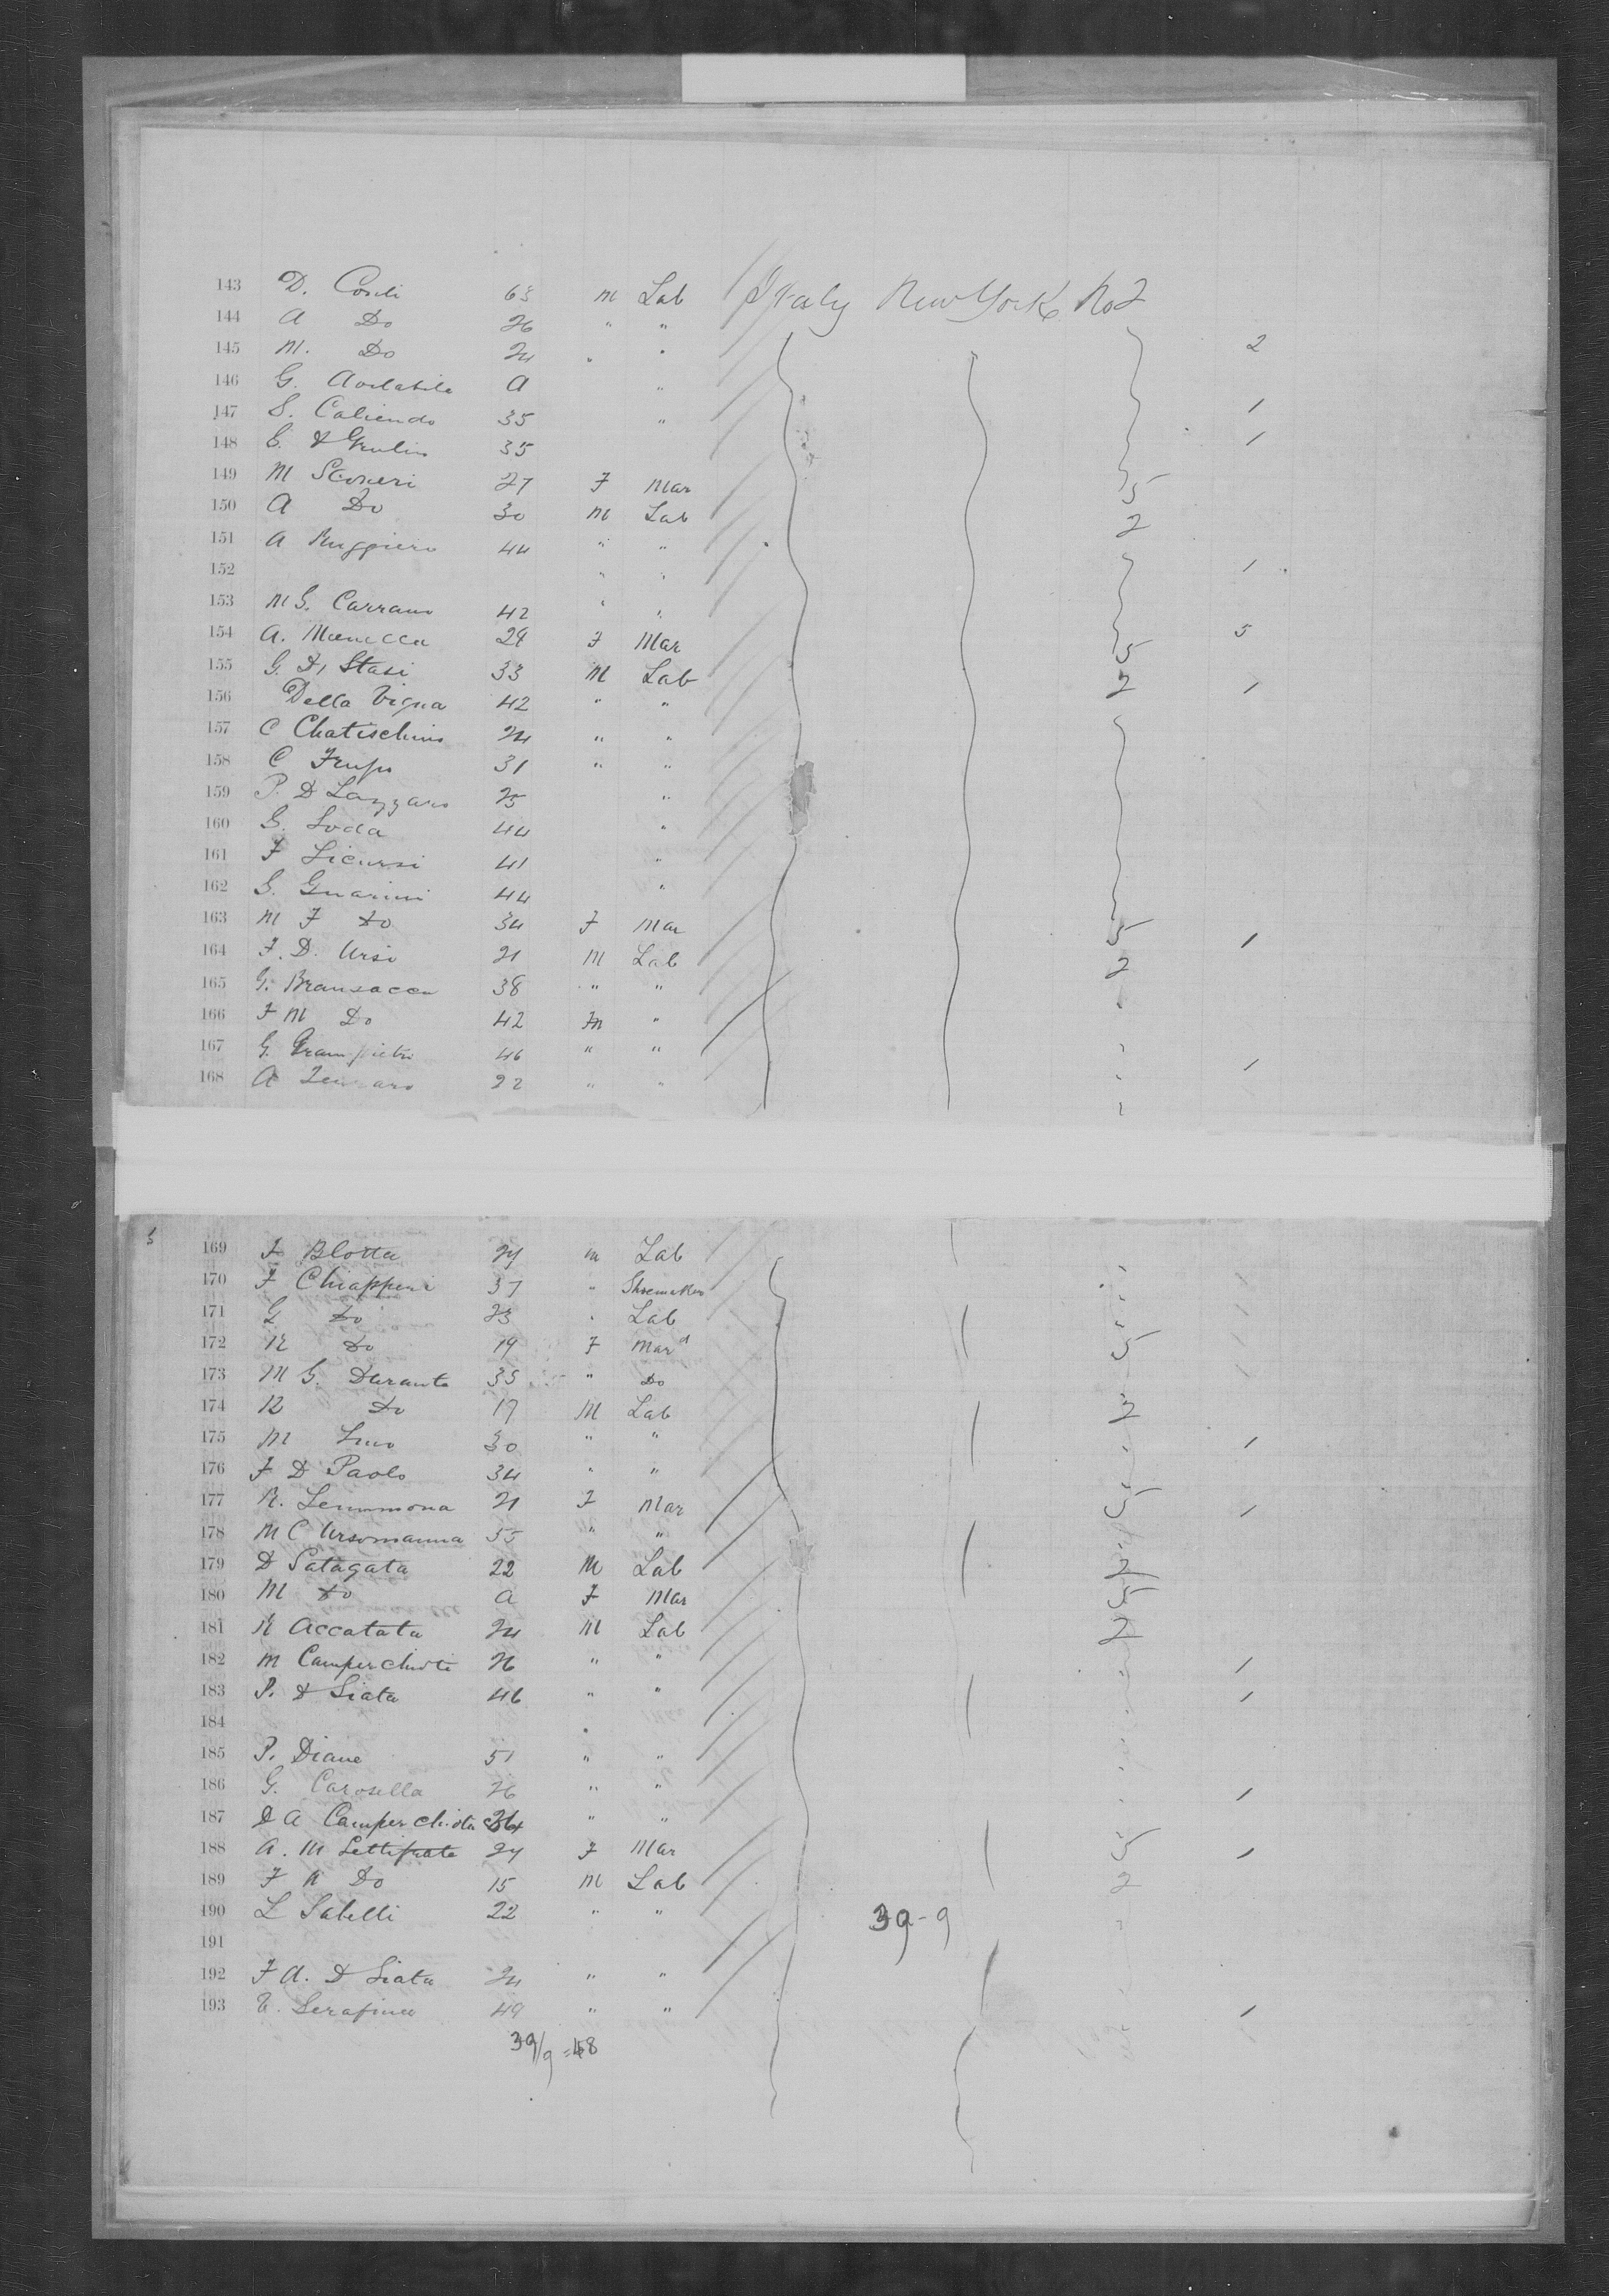 143 D. Conti 63 M Lab Italy New York No 2
144 A Do 26 " "
145 M. Do 24 " " 2
146 G. A "
147 S. Caliendo 35 " 1
148 35 1
149 M Sconeri 27 F Mar 5
150 A Do 30 M Lab 2
151 A Ruggiero 44 " "
152 " " 1
153 M G. Carrano 42 " "
154 A. 29 F Mar 5 5
155 G. Di Stasi 33 M Lab 2 1
156 Della Vigna 42 " "
157 C Chatischino 24 " "
158 C 31 " "
159 P. D Lazzaro 25 "
160 G. Loda 44 "
161 F Licursi 41 "
162 G. Guarini 44 "
163 M F Do 34 F Mar 5
164 F. D. Urso 21 M Lab 2 1
165 G. Bransacca 38 " "
166 F M Do 42 M "
167 G. Grampietro 46 " "
168 A 22 " " 1
169 F Blotta 24 m Lab
170 F Chiapperi 37 " Shoemaker
171 G Do 23 " Lab
172 Do 19 F Mard 5
173 M G. Durante 35 " Do
174 R Do 17 M Lab 2
175 M 30 " " 1
176 F D Paolo 34 " "
177 R. Lemmona 21 F Mar 5 1
178 M C Ursomanna 55 " "
179 D Patagata 22 M Lab 2
180 M Do a F Mar 5
181 Accatata 24 M Lab 2
182 M Camperchioti 26 " " 1
183 P. D Liata 46 " " 1
184 "
185 P. Diane 51 " "
186 G. Carosella 26 " " 1
187 D A Camperchiota 36 " "
188 A. M Settifrate 24 F Mar 5 1
189 F Do 15 M Lab 2
190 L Sabelli 22 " " 39-9
191
192 F A. D Liata 24 " "
193 Serafina 49 " " 1
39/9 = 48